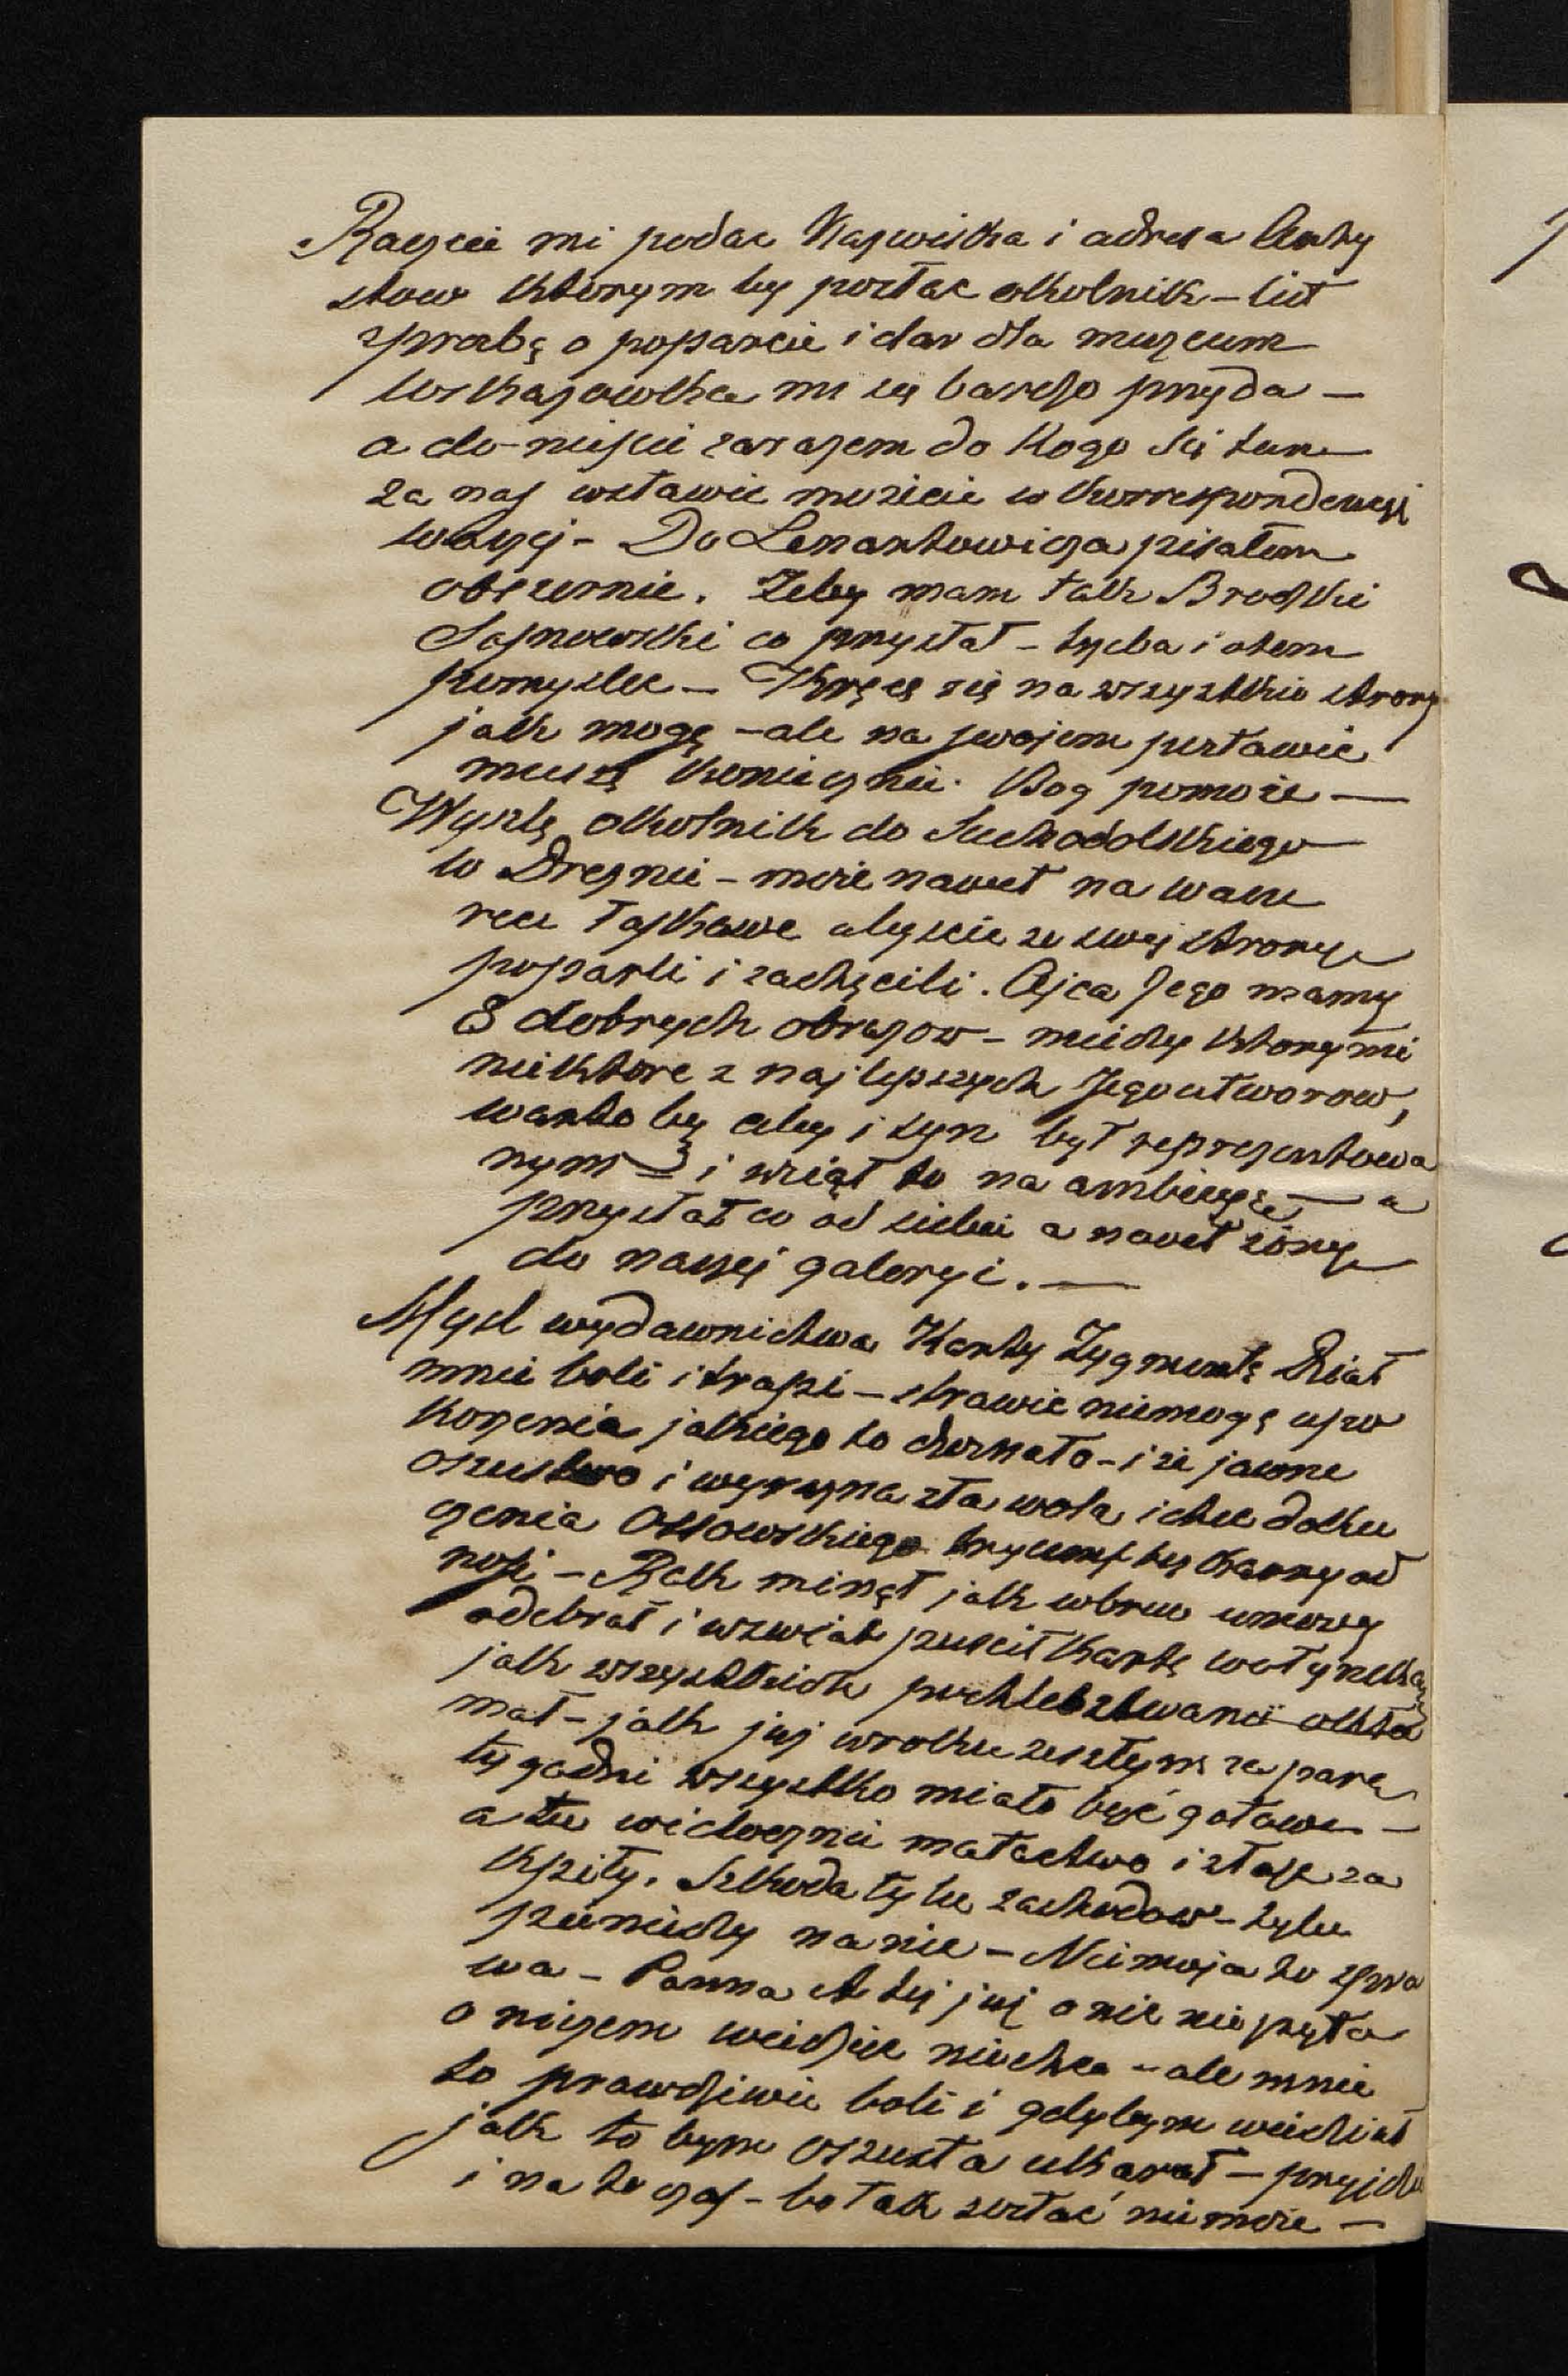 Raczcie mi podac Nazwiska i adresa Arty
stow ktorym by posłac okolnik – list
z prosbą o poparcie i dar dla muzeum
wskazowka mi się bardzo przyda –
a do-nieście zarazem do kogo się tam
za nas wstawic możicie w korrespondencyi
waszej – Do Lenartowicza pisałem
obszernie. Zeby mam tak Brodzki
Sosnowski co przysłał – trzeba i otem
pomyslec – Kręcę się na wszystkie strony
jak mogę – ale na swojem postawie
muszę koniecznie. Bog pomoże –
Wyszlę okolnik do Suchodolskiego
w Dreznie – może nawet na wasze
rece łaskawe abyscie ze swej strony
poparli i zachęcili. Ojca Jego mamy
8 dobrych obrazow – miedzy ktorymi
niektore z najlepszych Jego utworow,
warto by aby i syn był reprezentowa
nym i wziął to na ambicyę – a
przysłał co od siebie a nawet żony
do naszej galeryi. –
Mysl wydawnictwa Karty Zygmunta
mnie boli i trapi – strawic niemogę upo
korzenia jakiego to doznało – i ze jawne
oszustwo i wyrazna zła wola i chec doku
czenia Ossowskiego tryumf bezkarny od
nosi – Rok minął jak wbrew umowy
odebrał i wzwiął puscił kartę
jak wszystkich pochlebstwami okła
mał – jak juz wroku zeszłym za parę
tygodni wszystko miało być gotowe –
a tu widocznie matactwo i złosc za
kpiły. Szkoda tylu zachodow – tylu
pieniedzy na nic – Nie moja to spra
wa – Panna też juz o nic nie pyta
o niczem wiedziec niechce – ale mnie
to prawdziwie boli i gdybym wiedział
jak to bym oszusta ukarał – przyjdzie
i na to czas – bo tak zostać nie może –